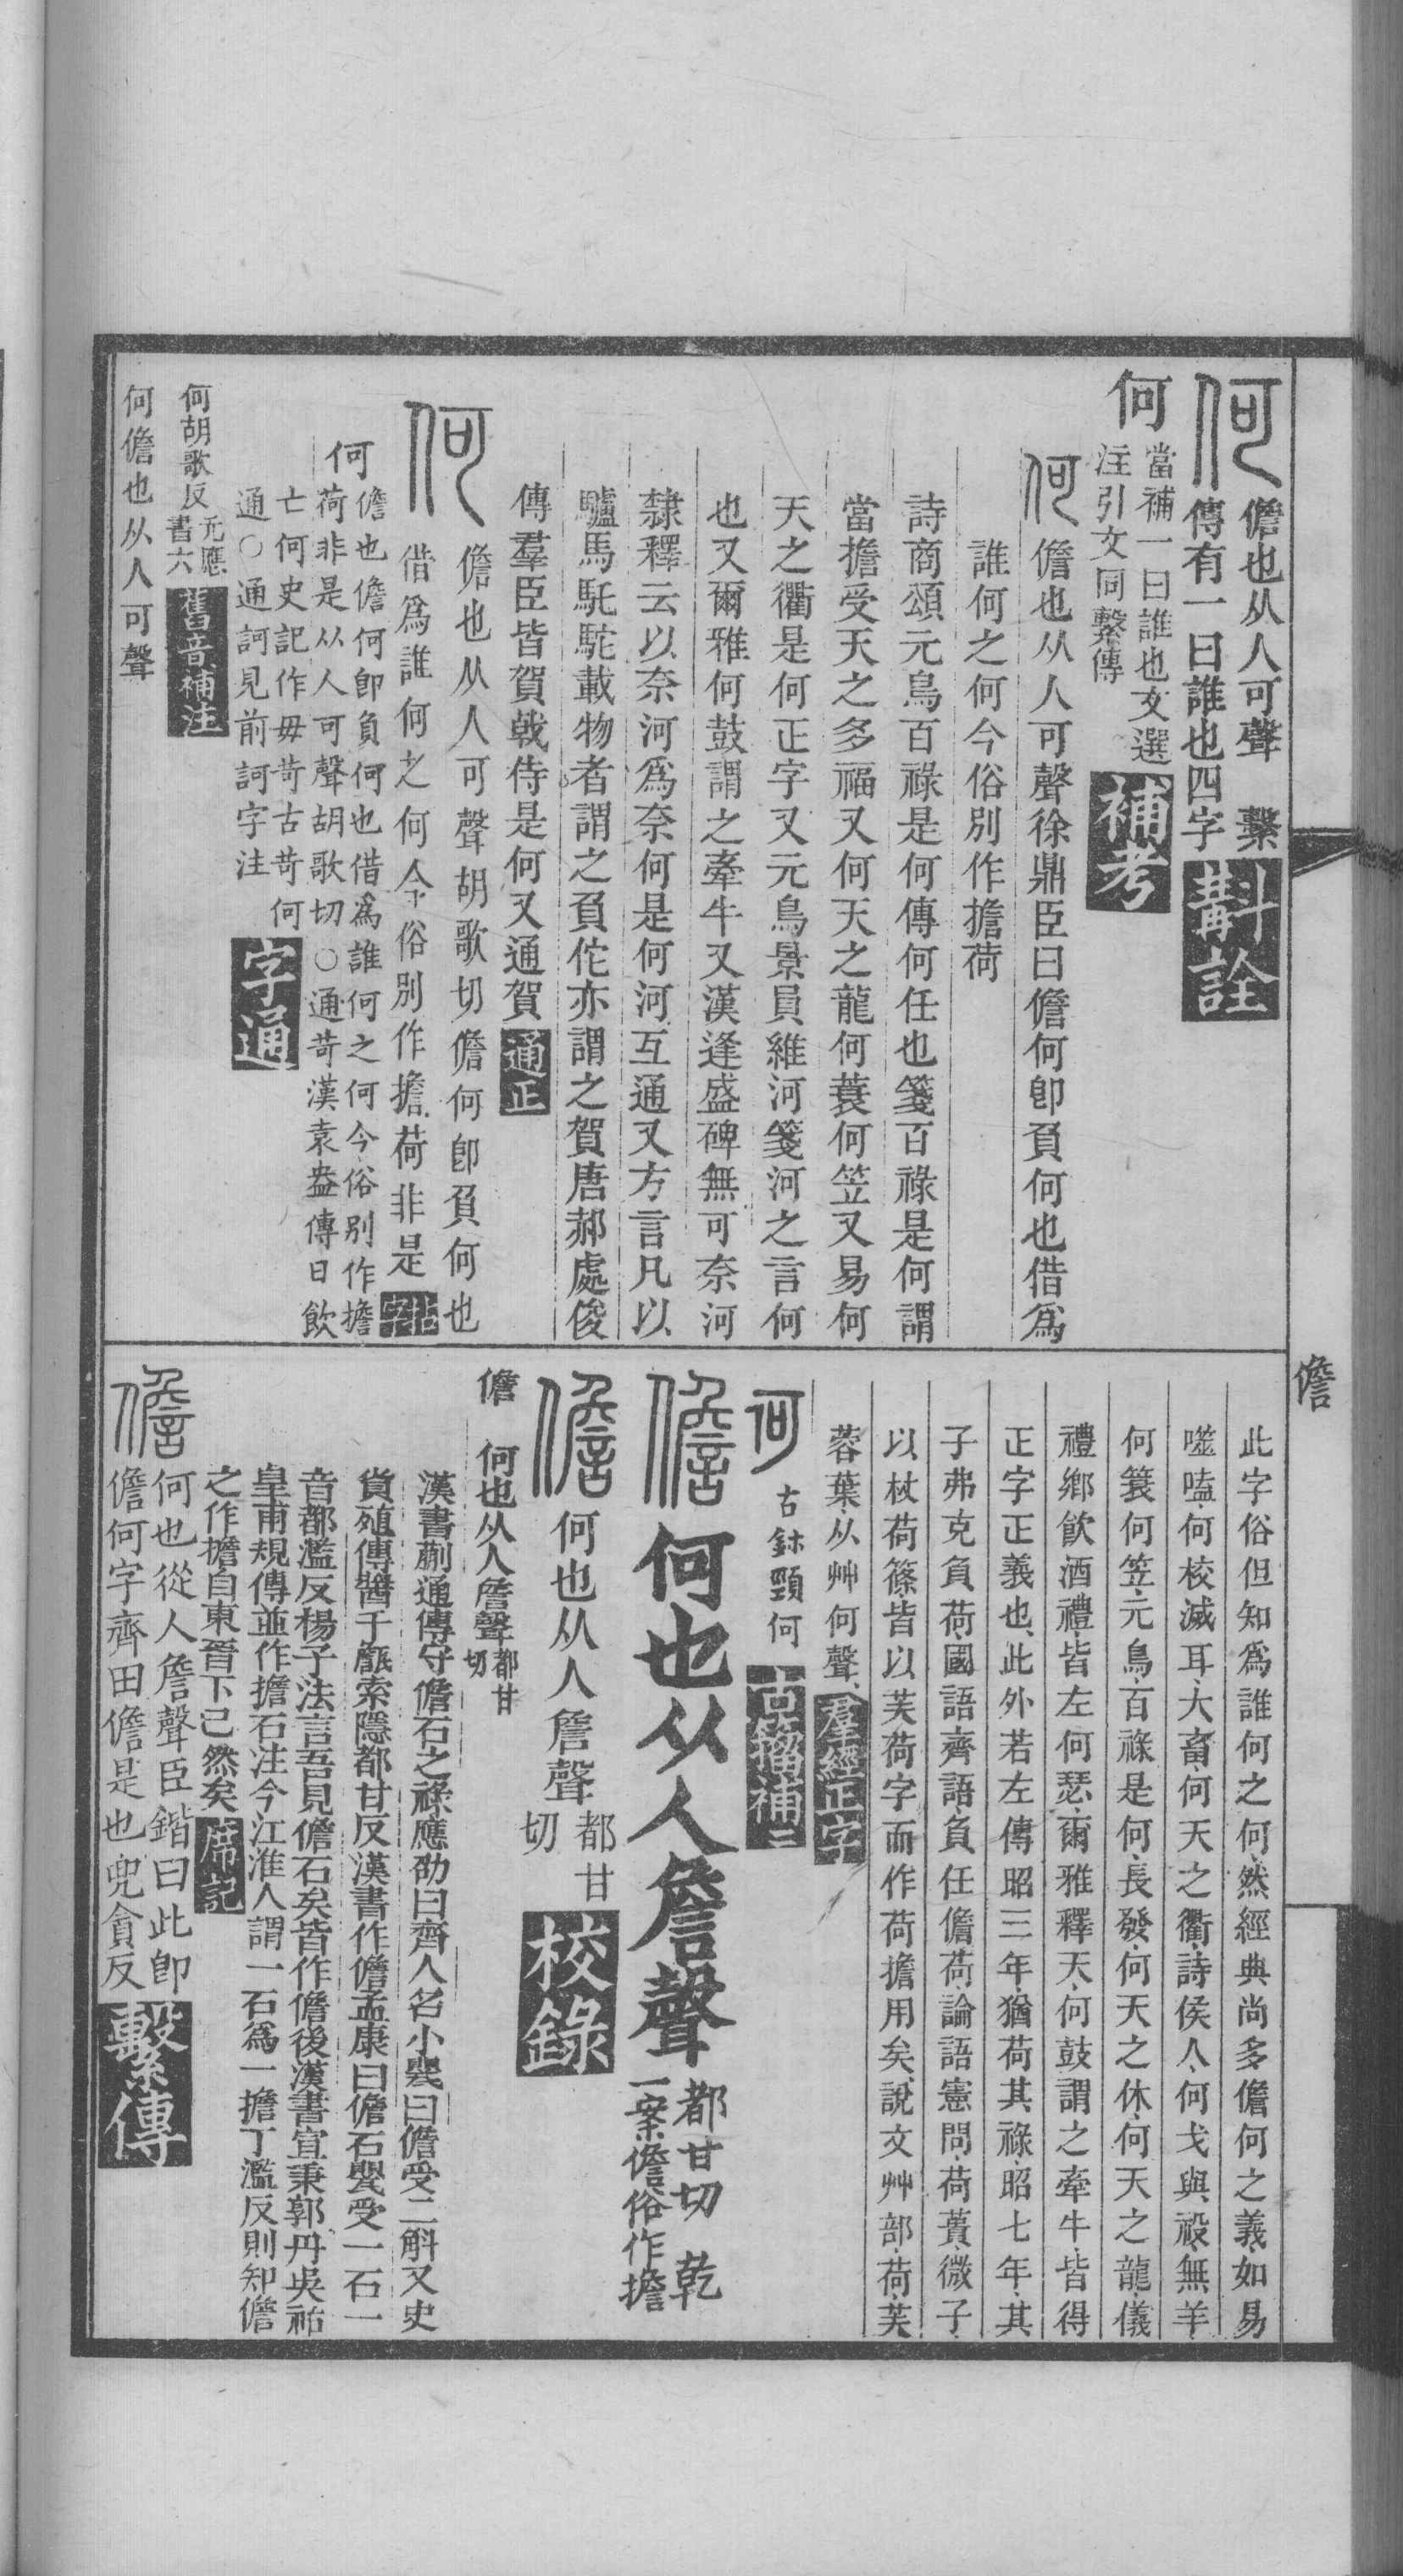 何
儋也从人可聲　繫
傳有一曰誰也四字
斠詮
何
當補一曰誰也文選
注引文同繫傳
補考
何
儋也从人可聲徐鼎臣曰儋何卽負何也借爲
誰何之何今俗別作擔荷
詩商頌元鳥百祿是何傳何任也箋百祿是何謂
當擔受天之多福又何天之龍何蓑何笠又易何
天之衢是何正字又元鳥景員維河箋河之言何
也又爾雅何鼓謂之牽牛又漢逢盛碑無可奈河
隸釋云以奈河爲奈何是何河互通又方言凡以
驢馬馲駝載物者謂之負佗亦謂之賀唐郝處俊
傳羣臣皆賀戟侍是何又通賀
通正
何
儋也从人可聲胡歌切儋何卽負何也
借爲誰何之何今俗別作擔荷非是
何
儋也儋何卽負何也借爲誰何之何今俗別作擔
荷非是从人可聲胡歌切○通苛漢袁盎傳日飲
亡何史記作毋苛古苛何
通○通訶見前訶字注
字通
何胡歌反
元應
書六
舊音補注
何儋也从人可聲
儋
此字俗但知爲誰何之何然經典尚多儋何之義如易
噬嗑何校滅耳大畜何天之衢詩侯人何戈與祋無羊
何簑何笠元鳥百祿是何長發何天之休何天之龍儀
禮鄉飲酒禮皆左何瑟爾雅釋天何鼓謂之牽牛皆得
正字正義也此外若左傳昭三年猶荷其祿昭七年其
子弗克負荷國語齊語負任儋荷論語憲問荷蕢微子
以杖荷篠皆以芙荷字而作荷擔用矣說文艸部荷芙
蓉葉从艸何聲
羣經正字
何
古鉥頸何
古籀補二
儋
何也从人詹聲
都甘切　乾
一案儋俗作擔
儋
何也从人詹聲
都甘
切
校錄
儋　何也从人詹聲
都甘
切
漢書蒯通傳守儋石之祿應劭曰齊人名小甖曰儋受二斛又史
貨殖傳醬千甔索隱都甘反漢書作儋孟康曰儋石甖受一石一
音都濫反楊子法言吾見儋石矣皆作儋後漢書宣秉郭丹吳祐
皇甫規傳並作擔石注今江淮人謂一石爲一擔丁濫反則知儋
之作擔自東晉下已然矣
席記
儋
何也從人詹聲臣鍇曰此卽
儋何字齊田儋是也兜貪反
繫傳